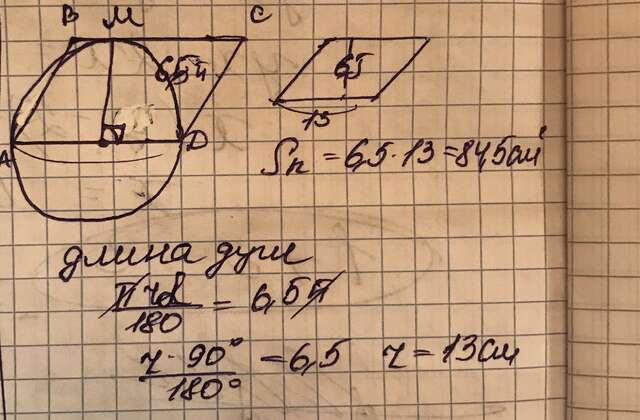 B M C
6,5π
A D
6,5
13
Sп = 6,5·13 = 84,5 см²
длина дуги
πrα/180 = 6,5π
r·90°/180° = 6,5 r = 13 см